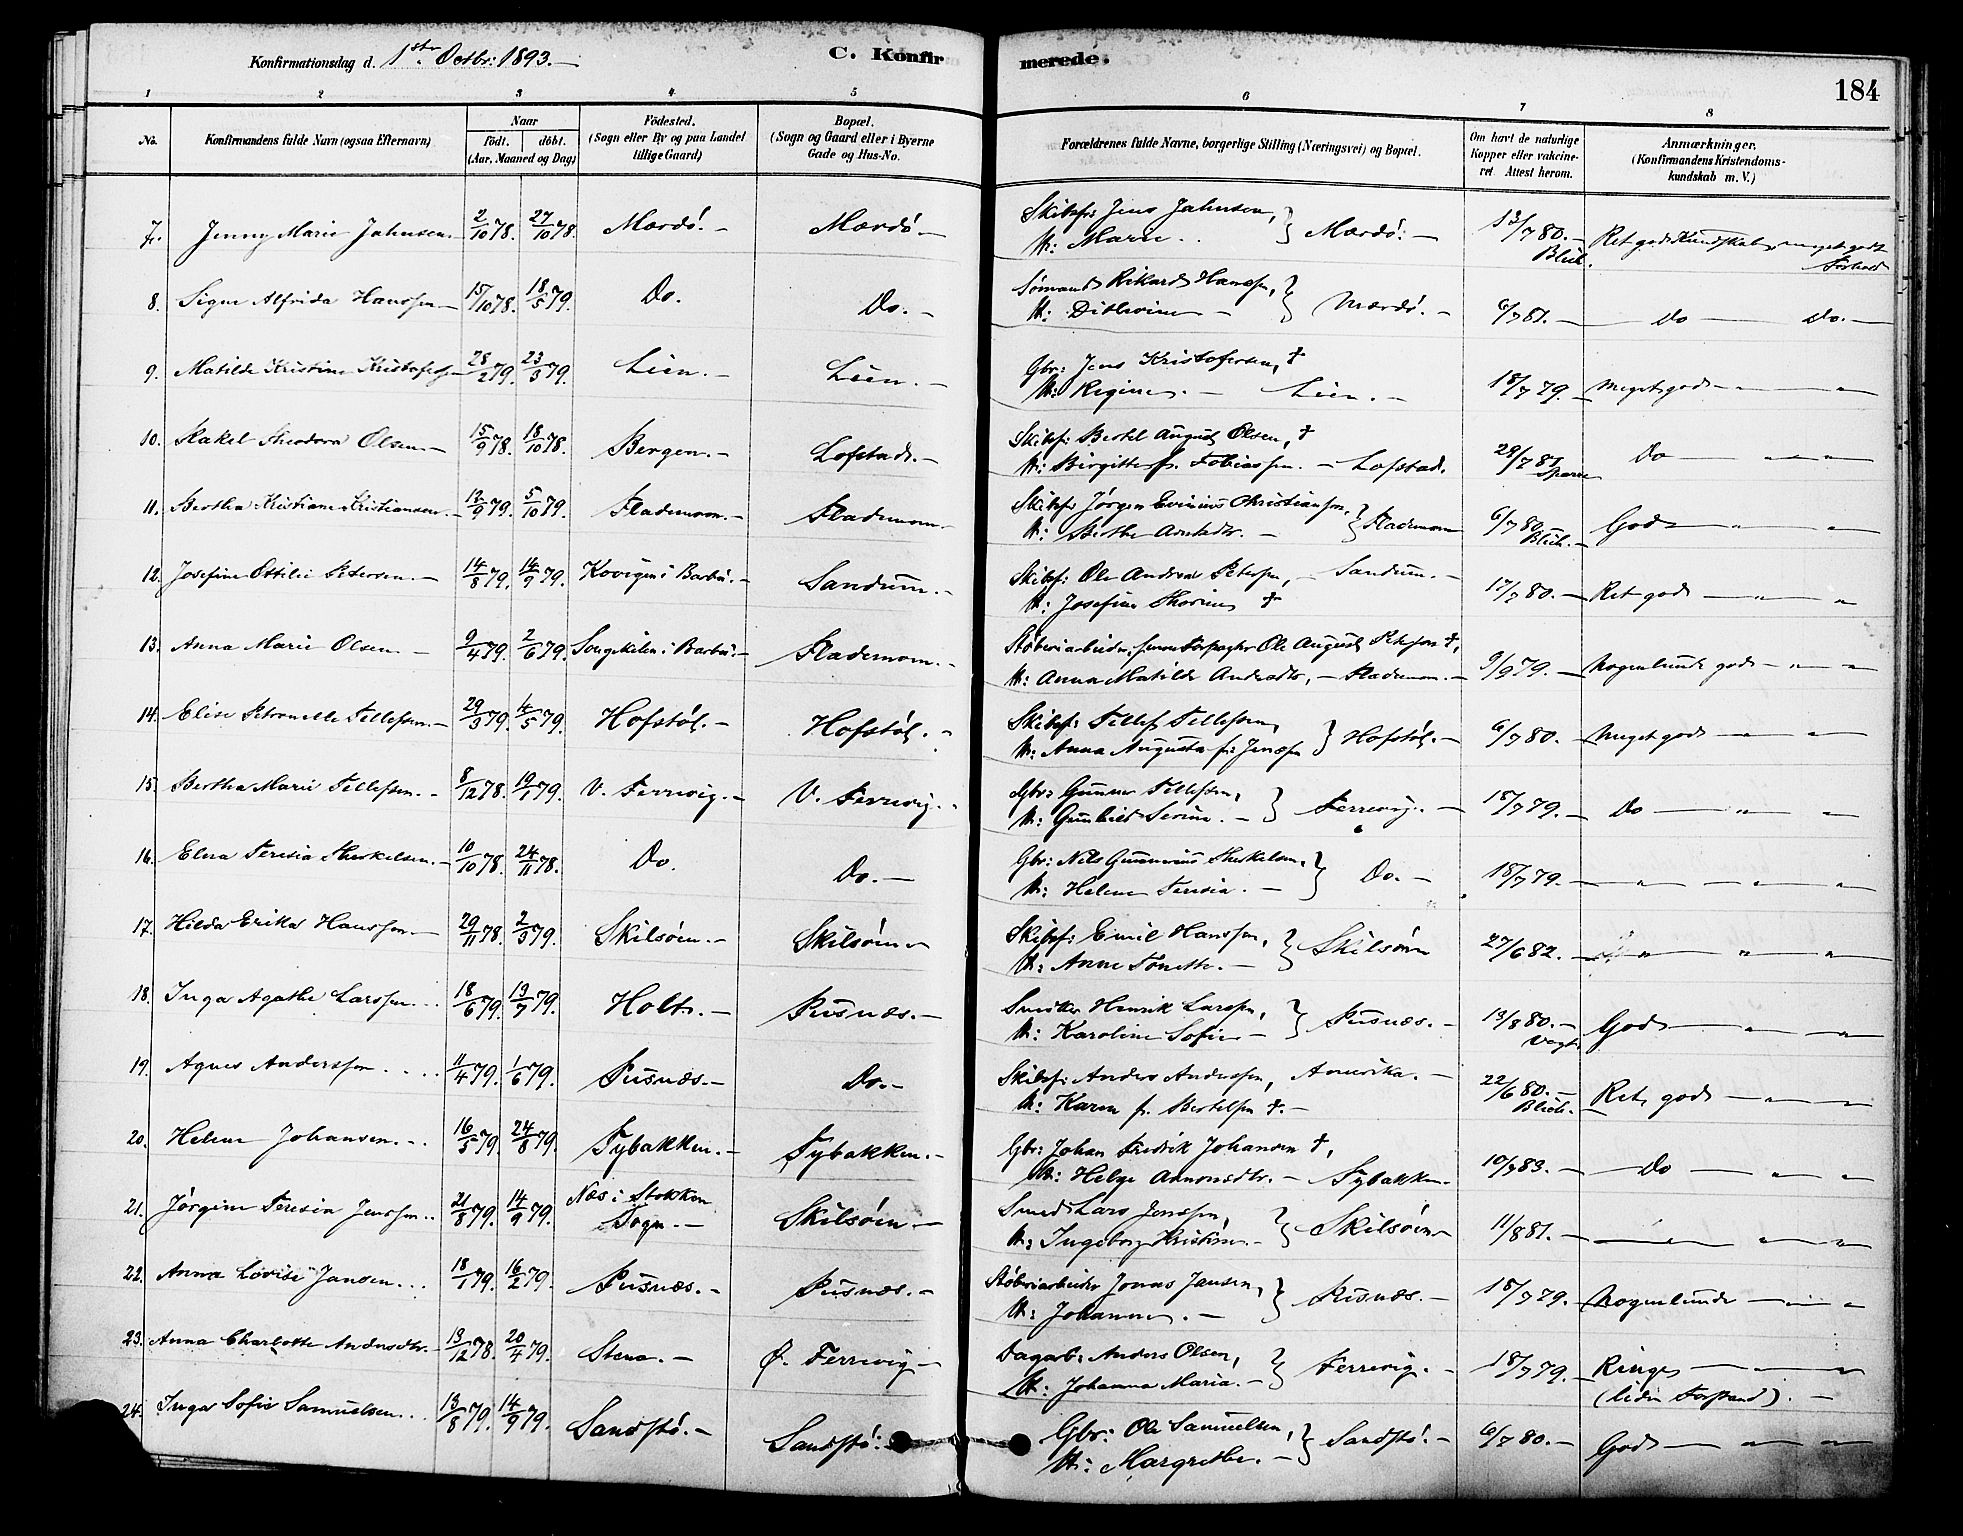 Konfirmationsdag d. 1ste Octbr: 1893.—
C. Konfirmerede.
184
1 2 3 4 5 6 7 8
No. Konfirmandens fulde Navn (ogsaa Efternavn) Naar födt. döbt. (Aar, Maaned og Dag) Födested. (Sogn eller By og paa Landet tillige Gaard) Bopæl. (Sogn og Gaard eller i Byerne Gade og Hus-No. Forældrenes fulde Navne, borgerlige Stilling (Næringsvei) og Bopæl. Om havt de naturlige Kopper eller vakcineret. Attest herom. Anmærkninger. (Konfirmandens Kristendomskundskab m. V.)
7. Jenny Marie Jahnsen. 2/10 78. 27/10 78. Mærdö.— Mærdö— Skibsf: Jens Jahnsen, H: Marie.. } Mærdö:— 13/7 80.— Blich. Ret god Kundskab, meget godt Forhold
8. Signe Alfrida Hanssen— 15/10 78. 18/5 79. Do. Do.— Sömand Rikard Hanssen, H: Ditlevine— } Mærdö.— 6/7 81.— Do — Do.—
9. Matilde Kristine 28/2 79. 23/3 79. Lien.— Lien.— Gbr: Jens Kristofersen, † H: Regine.— Lien.— 18/7 79. Meget god — „ — „
10. Rakel Theodora Olsen— 15/9 78. 18/10 78. Bergen.— Lofstad.— Skibsf: Bertel August Olsen, † H: Birgitte f. Tobiassen.— Lofstad. 28/7 81. Do — „ — „
11. Bertha Kristiane Kristiansen.— 13/9 79. 5/10 79. Flademoen.— Flademoen.— Skibsf: Jörgen Christiansen, H: Berthe — } Flademoen 6/7 80. Blich.— God — „ — „
12. Josefine Ottilie Petersen.— 14/8 79. 14/9 79. Kovigen i Barbu.— Sandum.— Skibsf: Ole Andreas Petersen,— Sandum.— H: Josefine Thorine † 17/7 80.— Ret god — „ — „
13. Anna Marie Olsen.— 9/4 79. 2/6 79. Songekilen i Barbu.— Flademoen.— Støberiarbeider, Ole August Petersen †, H: Anna Matilde Andreadtr,— Flademoen.— 9/9 79.— Nogenlunde god — „ — „
14. Elise Petronelle Tellefsen.— 29/3 79. 4/5 79. Hofstöl.— Hofstöl.— Skibsf: Tellef Tellefsen, H: Anna Augusta f: Jensen } Hofstöl.— 6/7 80. Meget god — „ — „
15. Bertha Marie Tellefsen.— 8/12 78. 19/1 79. V. Færevig.— V. Færevig.— Gbr: Gunner Tellefsen, H: Gunhild Serine.— } Færevig.— 18/7 79.— Do — „ — „
16. Elna Teresia Therkelsen.— 10/10 78. 24/11 78. Do. Do.— Gbr: Nils Gunnerius Therkelsen, H: Helene Teresia.— } Do.— 18/7 79.— „ — „ — „
17. Hilda Erika Hanssen.— 29/11 78. 2/3 79. Skilsöen.— Skilsöen— Skibsf: Emil Hanssen, H: Anne Tonette.— } Skilsöen 27/6 82.— „ — „ — „
18. Inga Agathe Larssen... 18/6 79. 13/7 79. Holt.— Pusnæs.— Snedker Henrik Larssen, H: Karoline Sofie— } Pusnæs.— 13/8 80.— Vogt. God — „ — „
19. Agnes Anderssen.... 11/4 79. 1/6 79. Pusnæs.— Do.— Skibsf: Anders Anderssen, Amerika.— H: Karen f. Bertelsen †.— 22/6 80.— Blich.— Ret god — „ — „
20. Helene Johansen.— 16/5 79. 24/8 79. Tybakken.— Tybakken.— Gbr: Johan Fredrik Johansen †, H: Helge Aanonsdtr.— Tybakken— 10/7 83.— Do — „ — „
21. Jörgine Teresia Jenssen.. 21/8 79. 14/9 79. Næs i Stokken Sogn.— Skilsöen.— Smed Lars Jenssen, H: Ingeborg Kristine.— } Skilsöen— 11/8 81.— „ — „ — „
22. Anna Lovise Jansen... 18/1 79. 16/2 79. Pusnæs.— Pusnæs.— Støberiarbeider Jonas Jansen, H: Johanne.— } Pusnæs.— 18/7 79.— Nogenlunde — „ — „
23. Anna Charlotte Andersdtr.— 13/12 78. 20/4 79. — Ø. Færevig— Dagarb: Anders Olsen, H: Johanna Maria.— } Færevig.— 18/7 79.— Ringe — „ — (liden Forstand).—
24. Inga Sofie Samuelsen... 13/8 79. 14/9 79. Sandstö.— Sandstö.— Gbr: Ole Samuelsen, H: Margrethe.— } Sandstö.— 6/7 80.— God — „ — „